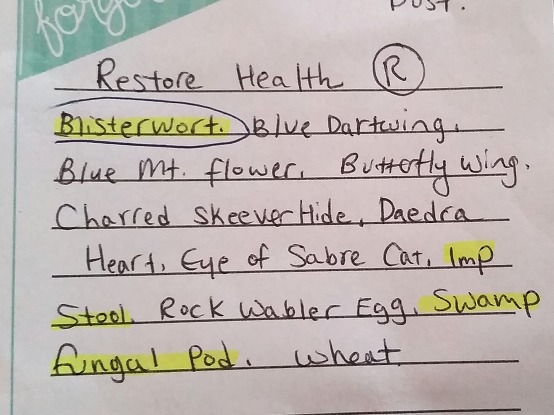 forgo
Dust.
Restore Health Ⓡ
Blisterwort. Blue Dartwing.
Blue Mt. flower. Butterfly wing.
Charred Skeever Hide. Daedra
Heart. Eye of Sabre Cat. Imp
Stool. Rock Wabler Egg. Swamp
fungal Pod. Wheat